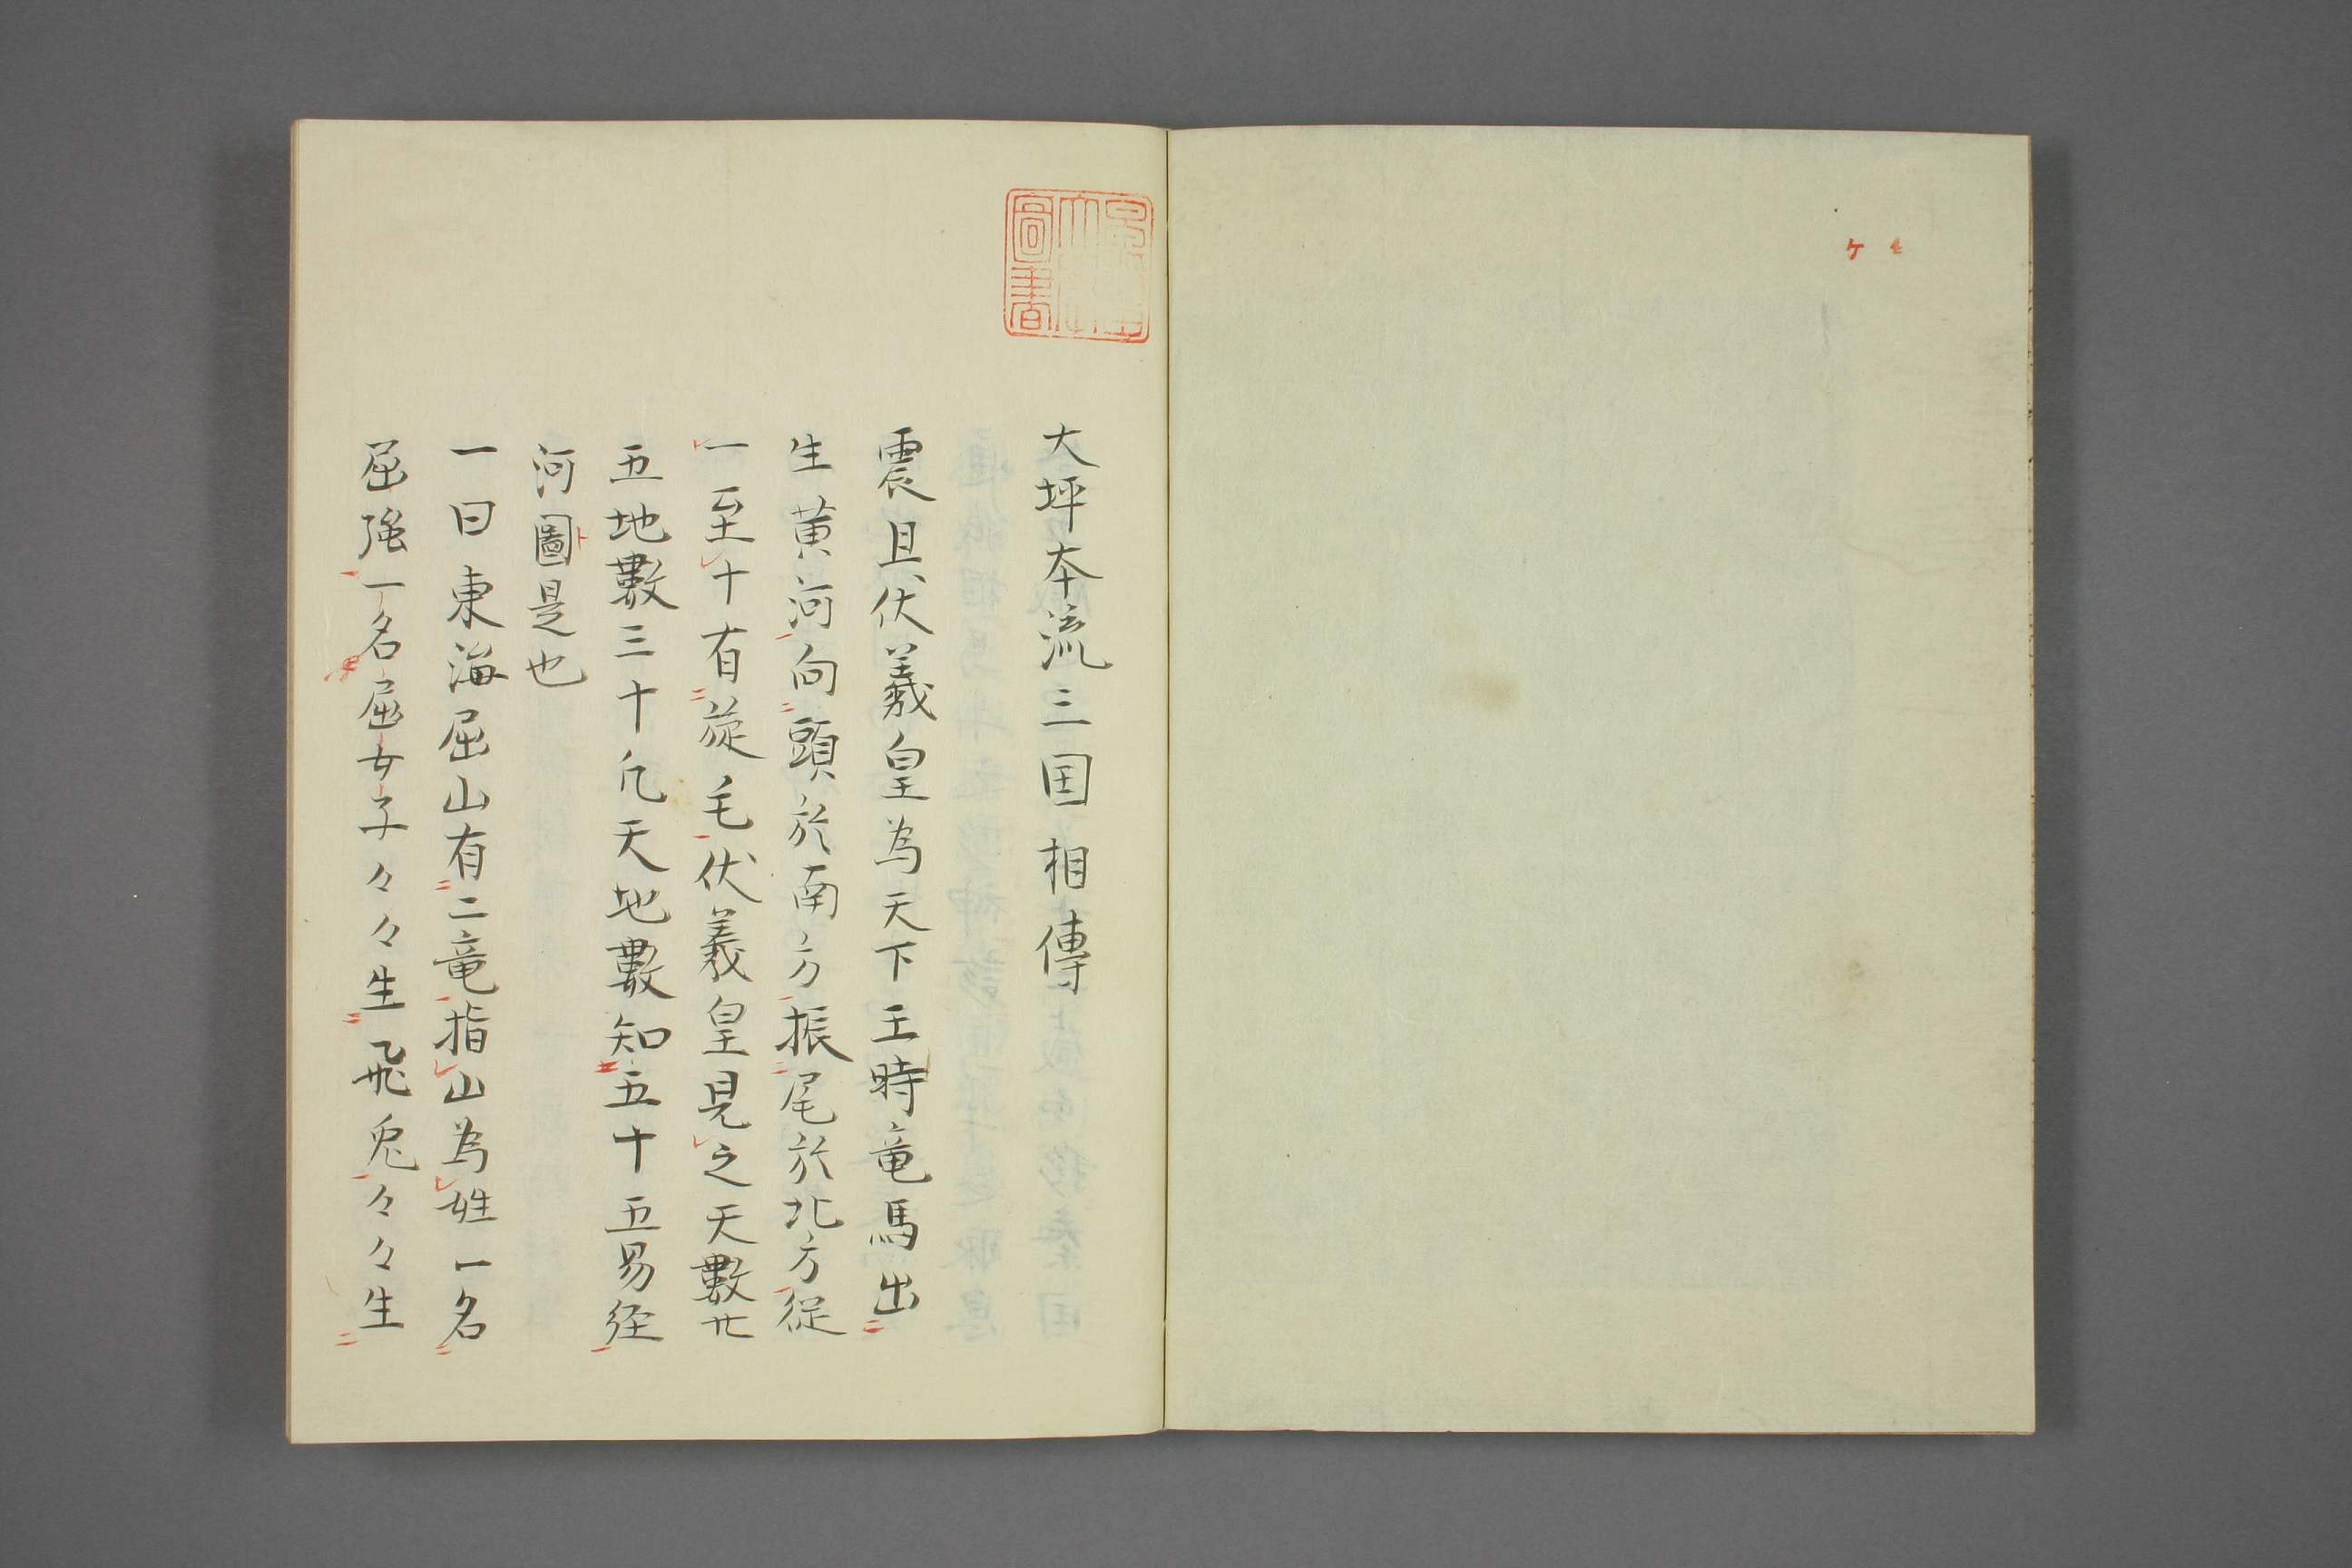 ケ
大坪本流三国相傳
震旦伏羲皇為天下王時竜馬出
生黄河向頭於南方振尾於北方従
一至十有旋毛伏羲皇見之天數廿
五地數三十凢天地數知五十五易径
河圖是也
一曰東海屈山有二竜指山為姓一名
屈強一名屈女子々々生飛兎々々生
圖書